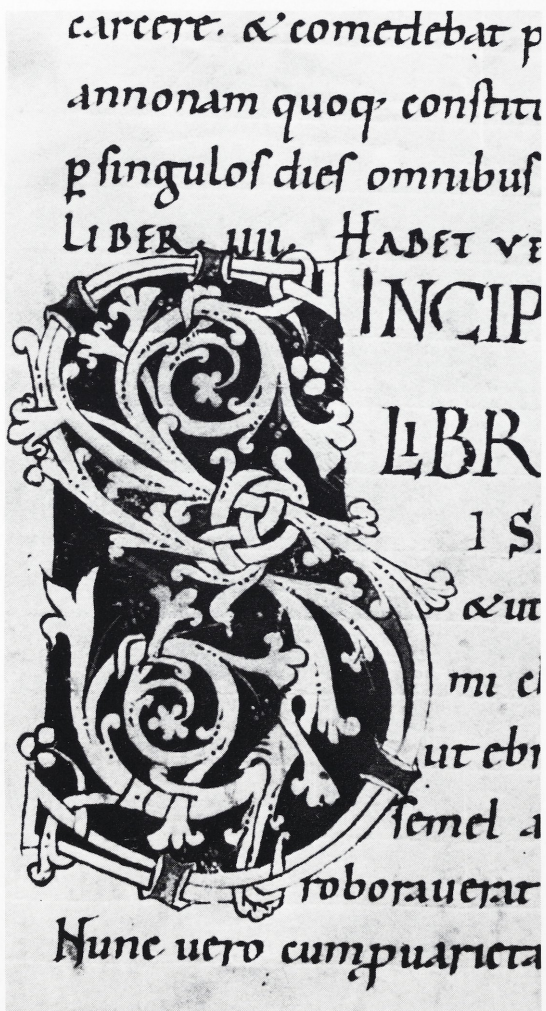 carcere. & comedebat p
annonam quoq; constitu
p singulos dies omnibus
LIBER. IIII. HABET VE
INCIP
LIBR
IS
S
& ut
mi el
ut ebr
semel a
roborauerat
Nunc uero cum p uarieta